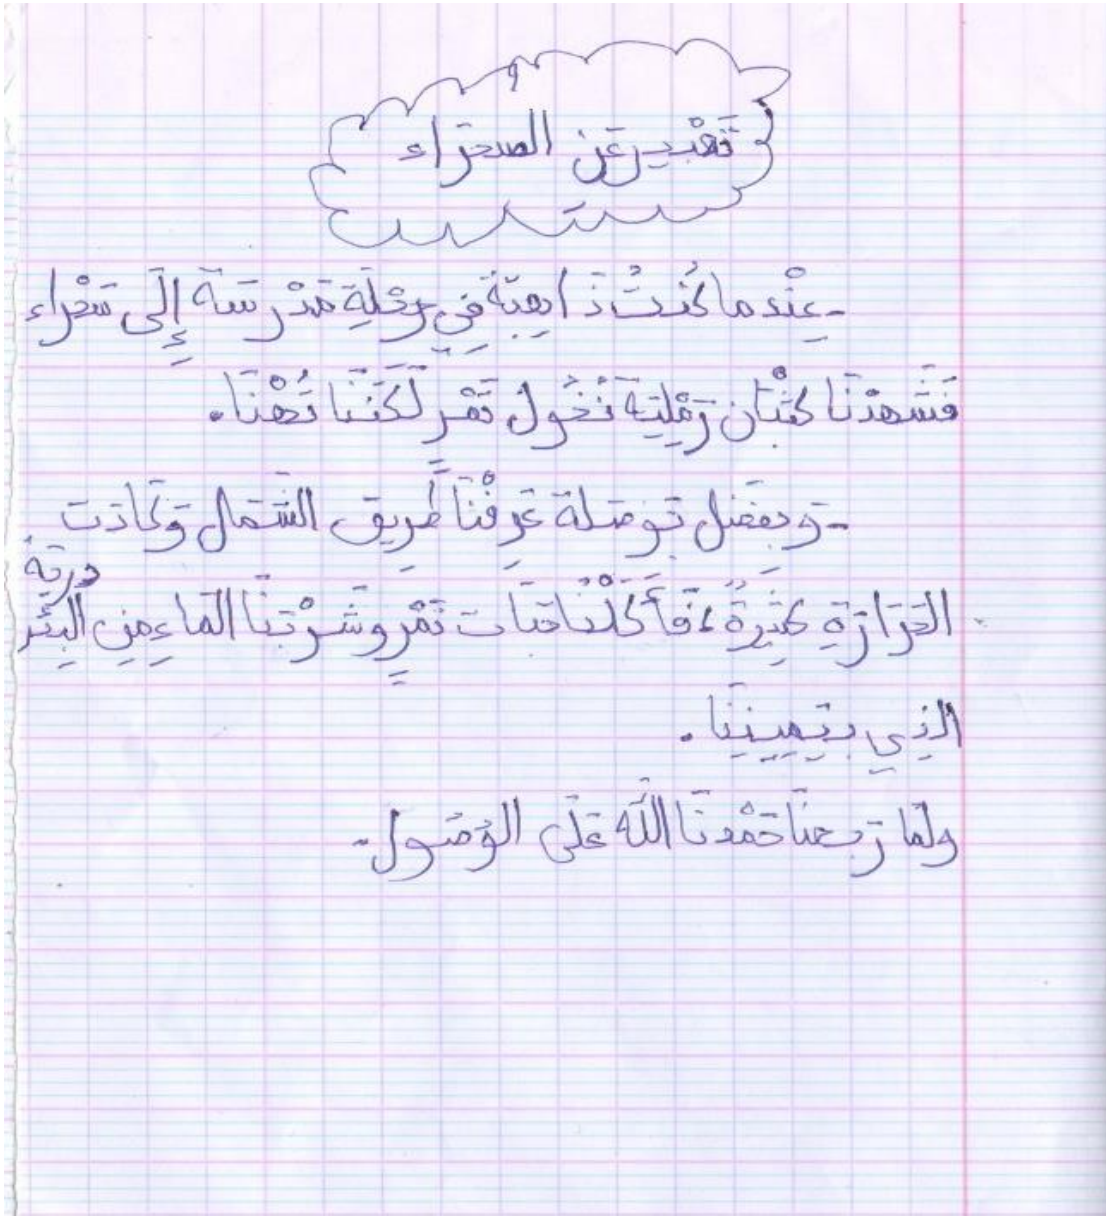 تَعْبير عَن الصحَراء
-عِنْدما كُنتُ ذَاهبَة فِي رحْلَةِ مَدْرَسَة إِلَى صَحْراء
فَشَهدْنَا كثْبَان رَمْلِيَة نُخُول تَمْر لَكَنَنا تُهْنَا.
-وَبفَضل بَوصَلة عَرِفْنَا طَرِيق الشَمال وَكَادَت
دربَةُ
الحَرَارَةِ كَثِيرَةً ،فَأَكَلْنَا حبَات تَمْرٍ وشَرْبَنَا المَاءِ مِن البِئْر
الذِي بيَمِينِنَا.
ولَمَا رَجعنَا حَمْدنَا اللَّه عَلَى الوُصُول.